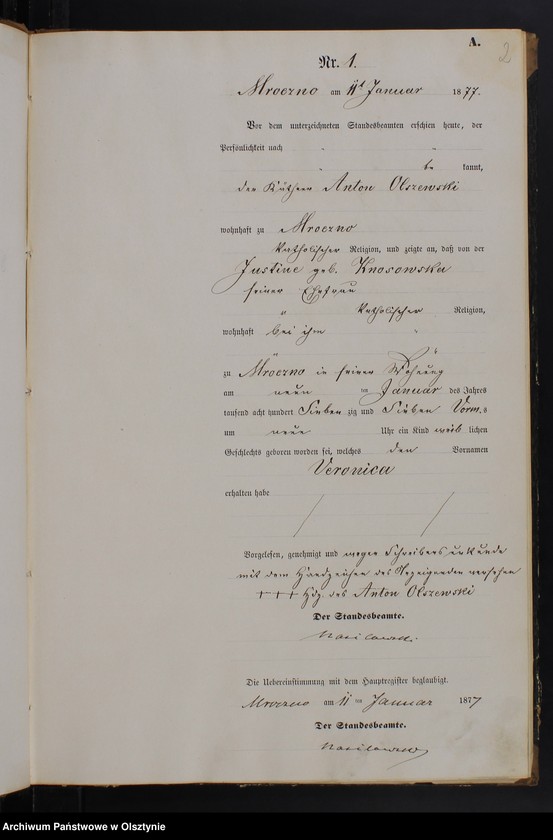 A.
2
Nr. 1.
Mroczno am 11t Januar 1877.
Vor dem unterzeichneten Standesbeamten erschien heute, der
Persönlichkeit nach
be kannt,
der Käthner Anton Olszewski
wohnhaft zu Mroczno
katholischer Religion, und zeigte an, daß von der
Justine geb. Knosowska
seiner Ehefrau
katholischer Religion,
wohnhaft bei ihm
zu Mroczno in seiner Wohnung
am neun ten Januar des Jahres
tausend acht hundert Sieben zig und Sieben Vorm.s
um neun Uhr ein Kind weib lichen
Geschlechts geboren worden sei, welches den Vornamen
Veronica
erhalten habe
Vorgelesen, genehmigt und wegen Schreibensunkunde
mit dem Handzeichen des Anzeigenden versehen
+++ Hdz. des Anton Olszewski
Der Standesbeamte.
Die Uebereinstimmung mit dem Hauptregister beglaubigt.
Mroczno am 11 ten Januar 1877
Der Standesbeamte.
Archiwum Państwowe w Olsztynie